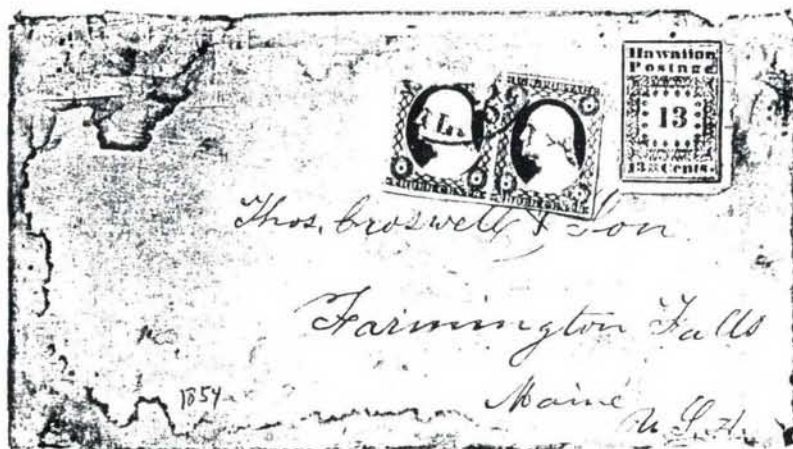 Hawaiian
Postage
13
13 Cents.
Thos. Croswell & Son
Farmington Falls
Maine
U.S.A.
1854